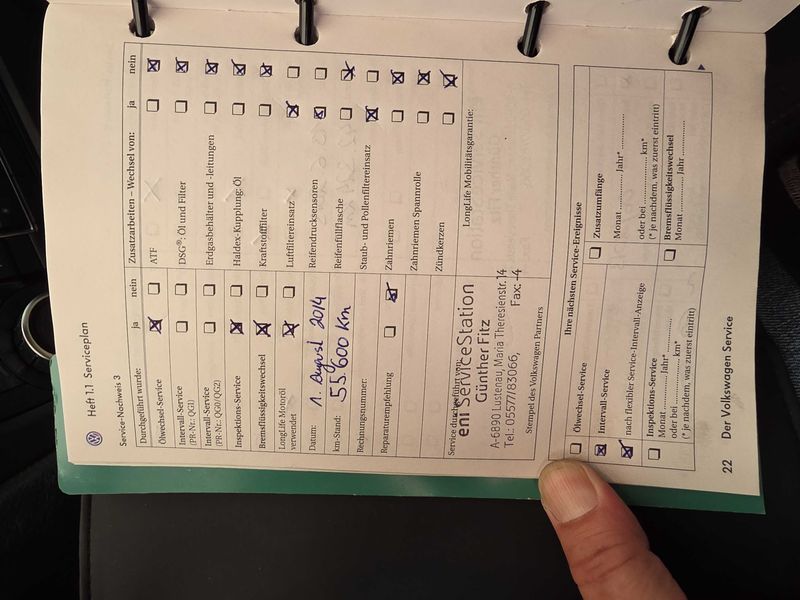 Heft 1.1 Serviceplan
Service-Nachweis 3
Durchgeführt wurde: ja nein
Ölwechsel-Service
Intervall-Service
(PR-Nr.: QG1)
Intervall-Service
(PR-Nr.: QG0/QG2)
Inspektions-Service
Bremsflüssigkeitswechsel
LongLife Motoröl
verwendet
Datum: 1. August 2014
km-Stand: 55.600 km
Rechnungsnummer:
Reparaturempfehlung
Service durchgeführt von:
eni ServiceStation
Günther Fitz
A-6890 Lustenau, Maria Theresienstr. 14
Tel.: 05577/83066, Fax: -4
Stempel des Volkswagen Partners
Zusatzarbeiten – Wechsel von: ja nein
ATF
DSG®, Öl und Filter
Erdgasbehälter und -leitungen
Haldex-Kupplung: Öl
Kraftstofffilter
Luftfiltereinsatz
Reifendrucksensoren
Reifenfüllflasche
Staub- und Pollenfiltereinsatz
Zahnriemen
Zahnriemen Spannrolle
Zündkerzen
LongLife Mobilitätsgarantie:
Ihre nächsten Service-Ereignisse
Ölwechsel-Service
Intervall-Service
nach flexibler Service-Intervall-Anzeige
Inspektions-Service
Monat ............ Jahr* ............
oder bei ............ km*
(* je nachdem, was zuerst eintritt)
Zusatzumfänge
Monat ............ Jahr* ............
oder bei ............ km*
(* je nachdem, was zuerst eintritt)
Bremsflüssigkeitswechsel
Monat ............ Jahr ............
22 Der Volkswagen Service